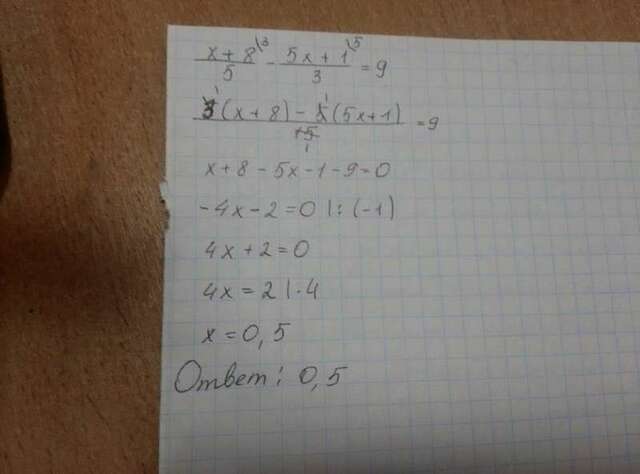 x+8\3/5 - 5x+1\5/3 = 9
3¹(x+8) - 5¹(5x+1)/15₁ = 9
x+8-5x-1-9=0
-4x-2=0 |:(-1)
4x+2=0
4x=2 |·4
x=0,5
Ответ: 0,5